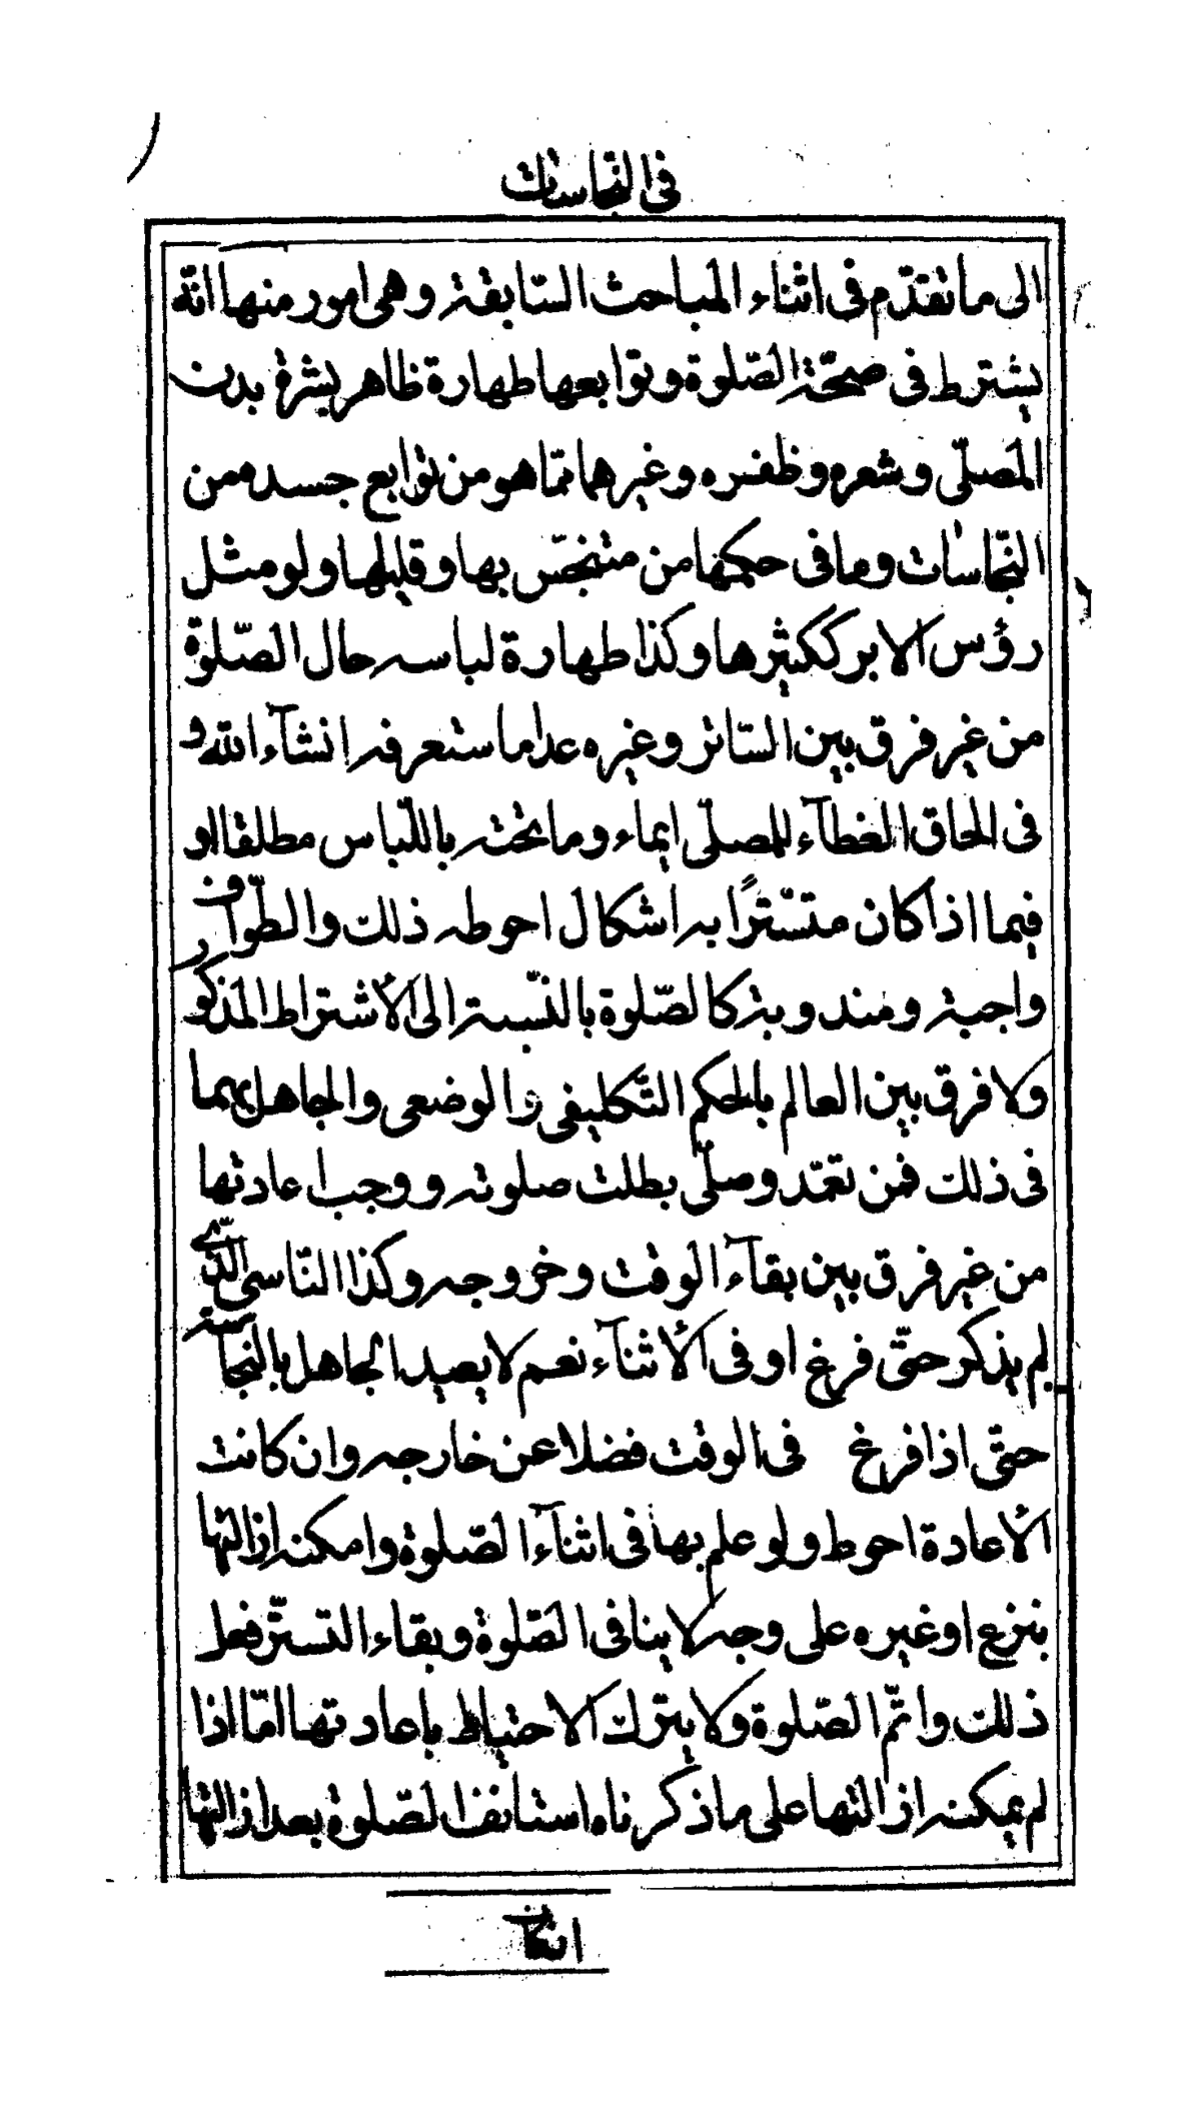 فى النجاسات
الى ما تقدّم فى اثناء المباحث السّابقة وهى امور منها انّه
يشترط فى صحّة الصّلوة وتوابعها طهارة ظاهر بشرة بدن
المصلّى وشعره وظفره وغيرهما ممّا هو من توابع جسده من
النّجاسات وما فى حكمها من متنجّس بها وقليلها ولو مثل
رؤس الابر ككثيرها وكذا طهارة لباسه حال الصّلوة
من غير فرق بين السّاتر وغيره عدا ما ستعرفه انشآء الله و
فى الحاق الغطآء للمصلّى ايماء وما تحته باللّباس مطلقا او
فيما اذا كان متستّرًا به اشكال احوطه ذلك والطّواف
واجبة ومندوبة كالصّلوة بالنّسبة الى الأشتراط المذكور
ولا فرق بين العالم بالحكم التّكليفى والوضعى والجاهل بهما
فى ذلك فمن تعمّد وصلّى بطلت صلوته ووجب اعادتها
من غير فرق بين بقآء الوقت وخروجه وكذا النّاسى الّذى
لم يذكر حتّى فرغ او فى الأثنآء نعم لا يعيد الجاهل بالنجاسة
حتّى اذا فرغ فى الوقت فضلا عن خارجه وان كانت
الأعادة احوط ولو علم بها فى اثنآء الصّلوة وامكنه ازالتها
بنزع او غيره على وجه لا ينافى الصّلوة وبقاء التستّر فعل
ذلك واتمّ الصّلوة ولا يترك الاحتياط باعادتها امّا اذا
لم يمكنه ازالتها على ما ذكرناه استانف الصّلوة بعد ازالتها
انكان